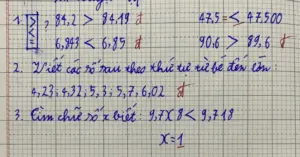 1. > < = ? 84,2 > 84,19 đ 47,5 = < 47,500
6,843 < 6,85 đ 90,6 > 89,6 đ
2. Viết các số sau theo thứ tự từ bé đến lớn :
4,23; 4,32; 5,3; 5,7; 6,02 đ
3. Tìm chữ số x biết : 9,7x8 < 9,718
x = 1